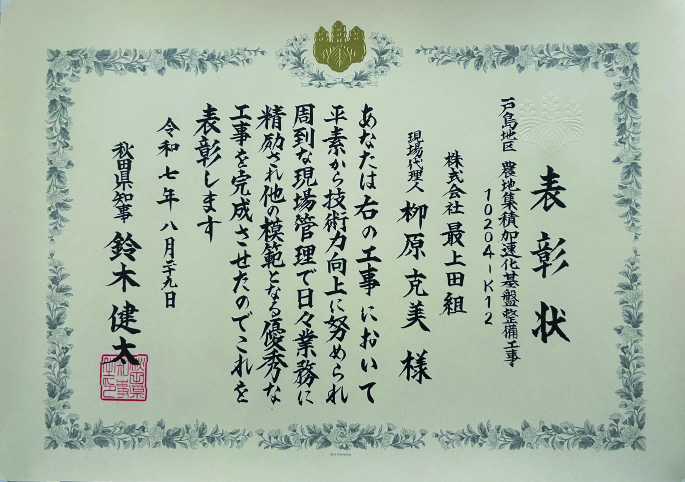 表彰状
戸島地区 農地集積加速化基盤整備工事
10204-K12
株式会社 最上田組
現場代理人 柳原克美 様
あなたは右の工事において
平素から技術力向上に努められ
周到な現場管理で日々業務に
精励され他の模範となる優秀な
工事を完成させたのでこれを
表彰します
令和七年八月二十九日
秋田県知事 鈴木健太